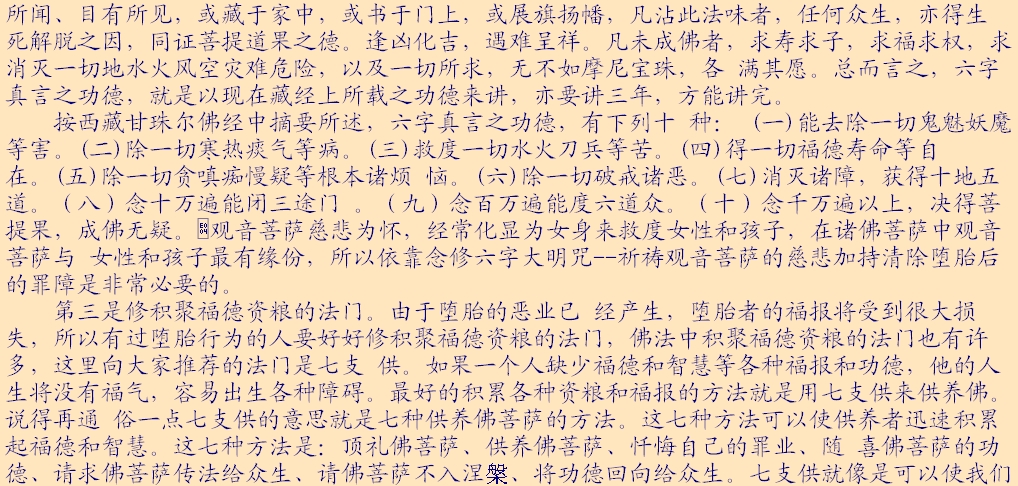 所闻、目有所见，或藏于家中，或书于门上，或展旗扬幡，凡沾此法味者，任何众生，亦得生
死解脱之因，同证菩提道果之德。逢凶化吉，遇难呈祥。凡未成佛者，求寿求子，求福求权，求
消灭一切地水火风空灾难危险，以及一切所求，无不如摩尼宝珠，各 满其愿。总而言之，六字
真言之功德，就是以现在藏经上所载之功德来讲，亦要讲三年，方能讲完。
按西藏甘珠尔佛经中摘要所述，六字真言之功德，有下列十 种： (一)能去除一切鬼魅妖魔
等害。(二)除一切寒热痰气等病。(三)救度一切水火刀兵等苦。(四)得一切福德寿命等自
在。(五)除一切贪嗔痴慢疑等根本诸烦 恼。(六)除一切破戒诸恶。(七)消灭诸障，获得十地五
道。（八）念十万遍能闭三途门 。（九）念百万遍能度六道众。（十）念千万遍以上，决得菩
提果，成佛无疑。观音菩萨慈悲为怀，经常化显为女身来救度女性和孩子，在诸佛菩萨中观音
菩萨与 女性和孩子最有缘份，所以依靠念修六字大明咒--祈祷观音菩萨的慈悲加持清除堕胎后
的罪障是非常必要的。
第三是修积聚福德资粮的法门。由于堕胎的恶业已 经产生，堕胎者的福报将受到很大损
失，所以有过堕胎行为的人要好好修积聚福德资粮的法门，佛法中积聚福德资粮的法门也有许
多，这里向大家推荐的法门是七支 供。如果一个人缺少福德和智慧等各种福报和功德，他的人
生将没有福气，容易出生各种障碍。最好的积累各种资粮和福报的方法就是用七支供来供养佛。
说得再通 俗一点七支供的意思就是七种供养佛菩萨的方法。这七种方法可以使供养者迅速积累
起福德和智慧。这七种方法是：顶礼佛菩萨、供养佛菩萨、忏悔自己的罪业、随 喜佛菩萨的功
德、请求佛菩萨传法给众生、请佛菩萨不入涅槃、将功德回向给众生。七支供就像是可以使我们